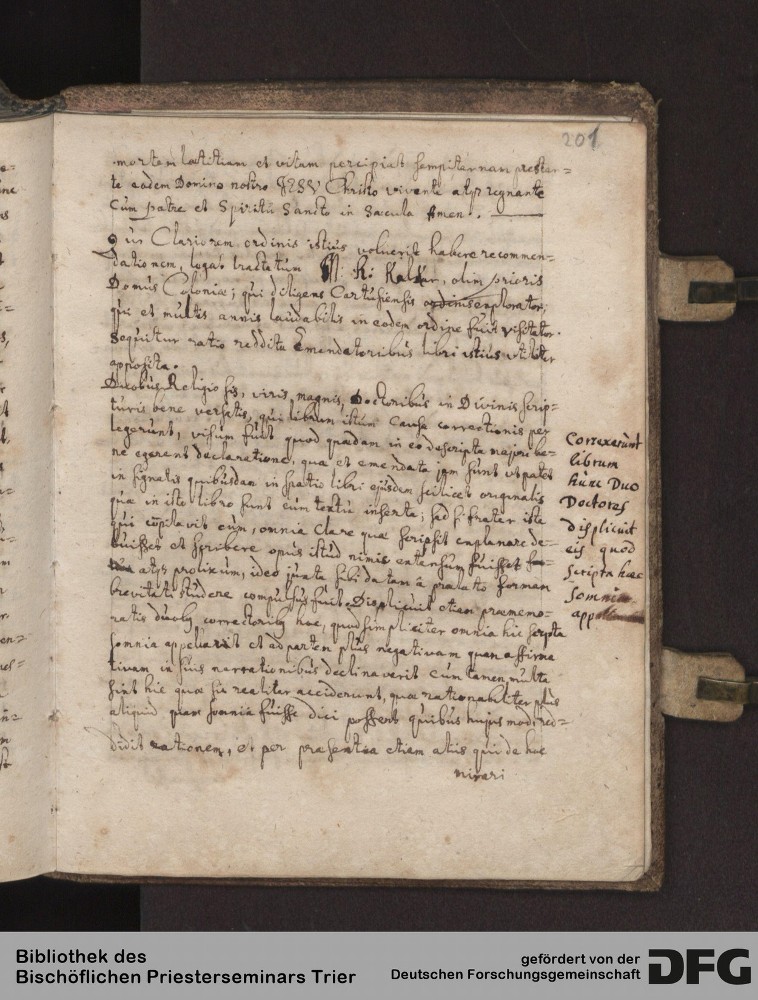 201
mortem lætitiam et vitam percipiat sempiternam præstan=
te eodem Domino nostro JESV Christo vivente atqz regnante
Cum patre et Spiritu Sancto in Sæcula Amen.
Qui Clariorem ordinis istius voluerit habere recommen=
dationem, legat tractatum M. Hi Kalkar, olim prioris
Domus Coloniæ; qui diligens Cartusiensis ordinis explorator,
qui et multis annis laudabilis in eodem ordine fuit visitator.
Sequitur ratio reddita Emendatoribus libri istius utiliter
apposita.
Duobus Religiosis, viris magnis, Doctoribus in Divinis scrip=
turis bene versatis, qui librum istum Causa correctionis per
legerunt, visum fuit quod quædam in eo descripta majore be=
ne egerent declaratione, quæ et emendata jam sunt ut patet
in signatis quibusdam in spatio libri ejusdem scilicet originalis
quæ in iste libro sunt cum textu inserta; sed si frater iste
qui copilavit eum, omnia Clare quæ scripsit explanare de=
buisset et scribere opus istud nimis extensum fuisset
atqz prolixum, ideo juxta sibi datam à prælato formam
brevitati studere compulsus fuit. Displicuit etiam præmemo=
ratis duobz correctoribz hoc, quod simpliciter omnia hic scripta
somnia appelavit et ad partem plus negativam quam affirma
tivam in suis narrationibus declinaverit cum tamen multa
sint hic quæ sic realiter acciderunt, quæ rationabiliter plus
aliquid quam somnia fuisse dici possent quibus hujusmodi red=
didit rationem, et per præsentia etiam aliis qui de hoc
mirari
Correxerunt
librum
hunc Duo
Doctores
displicuit
eis quod
scripta hæc
somnia
Bibliothek des
Bischöflichen Priesterseminars Trier
gefördert von der
Deutschen Forschungsgemeinschaft
DFG